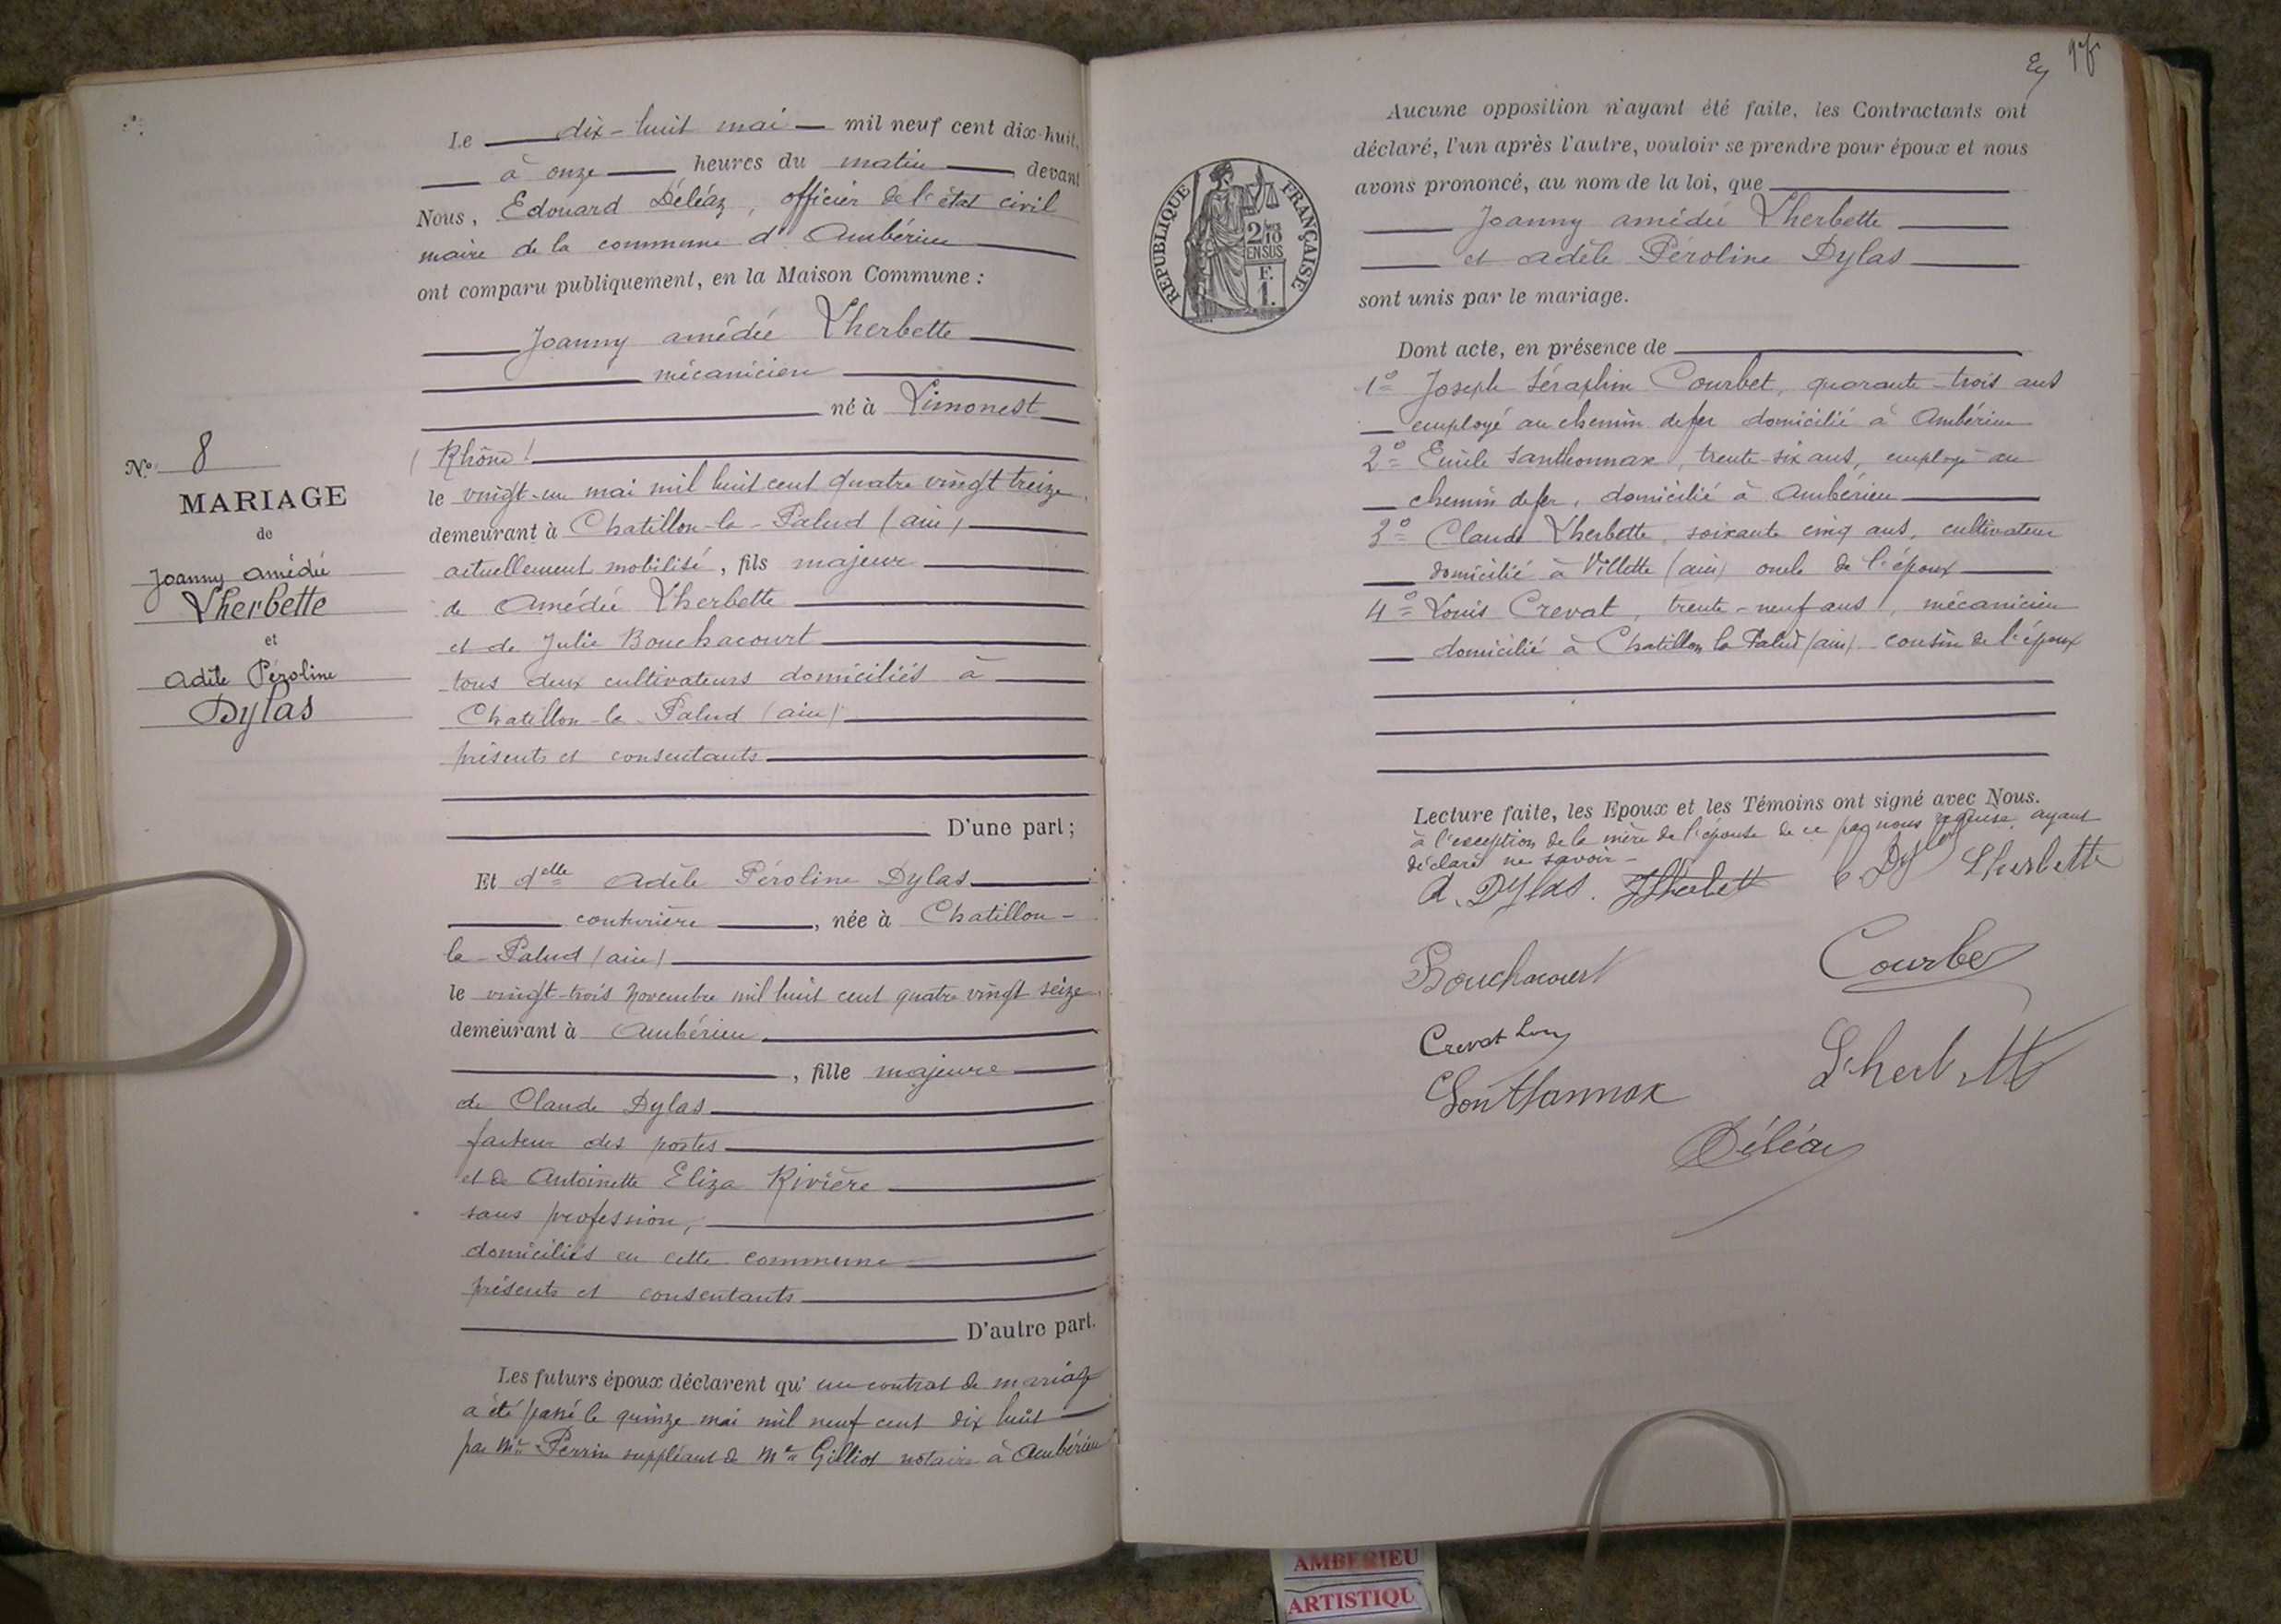 Le dix-huit mai mil neuf cent dix-huit,
à onze heures du matin, devant
Nous, Edouard Déléaz, officier de l'état civil
maire de la commune d'Ambérieu
ont comparu publiquement, en la Maison Commune :
Joanny amédée Lherbette
mécanicien
né à Limonest
(Rhône)
le vingt-un mai mil huit cent quatre vingt treize,
demeurant à Chatillon-la-Palud (ain)
actuellement mobilisé, fils majeur
de Amédée Lherbette
et de Julie Bouchacourt
tous deux cultivateurs domiciliés à
Chatillon-la-Palud (ain)
présents et consentants
D'une part ;
Et delle Adèle Péroline Dylas
couturière, née à Chatillon-
la-Palud (ain)
le vingt-trois novembre mil huit cent quatre vingt seize
demeurant à Ambérieu
, fille majeure
de Claude Dylas
facteur des postes
et de Antoinette Eliza Rivière
sans profession,
domiciliés en cette commune
présents et consentants
D'autre part.
Les futurs époux déclarent qu'un contrat de mariage
a été passé le quinze mai mil neuf cent dix huit
par Me Perrin suppléant de Me Gilliot notaire à Ambérieu
No 8
MARIAGE
de
Joanny amédée
Lherbette
et
Adèle Péroline
Dylas
Aucune opposition n'ayant été faite, les Contractants ont
déclaré, l'un après l'autre, vouloir se prendre pour époux et nous
avons prononcé, au nom de la loi, que
Joanny amédée Lherbette
et adèle Péroline Dylas
sont unis par le mariage.
RÉPUBLIQUE FRANÇAISE
2/10
EN SUS
F.
1.
Dont acte, en présence de
1o Joseph Séraphin Courbet, quarante-trois ans
employé au chemin de fer domicilié à Ambérieu
2o Emile Santhonnax, trente-six ans, employé au
chemin de fer, domicilié à Ambérieu
3o Claude Lherbette, soixante cinq ans, cultivateur
domicilié à Villette (ain) oncle de l'époux
4o Louis Crevat, trente-neuf ans, mécanicien
domicilié à Chatillon la Palud (ain) cousin de l'époux
Lecture faite, les Epoux et les Témoins ont signé avec Nous.
à l'exception de la mère de l'épouse de ce par nous requise, ayant
déclaré ne savoir-
A. DYlas. Lherbette
Bouchacourt Courbet
Crevat Louis
Lherbette
Santhonnax
Déléaz
AMBERIEU
ARTISTIQU